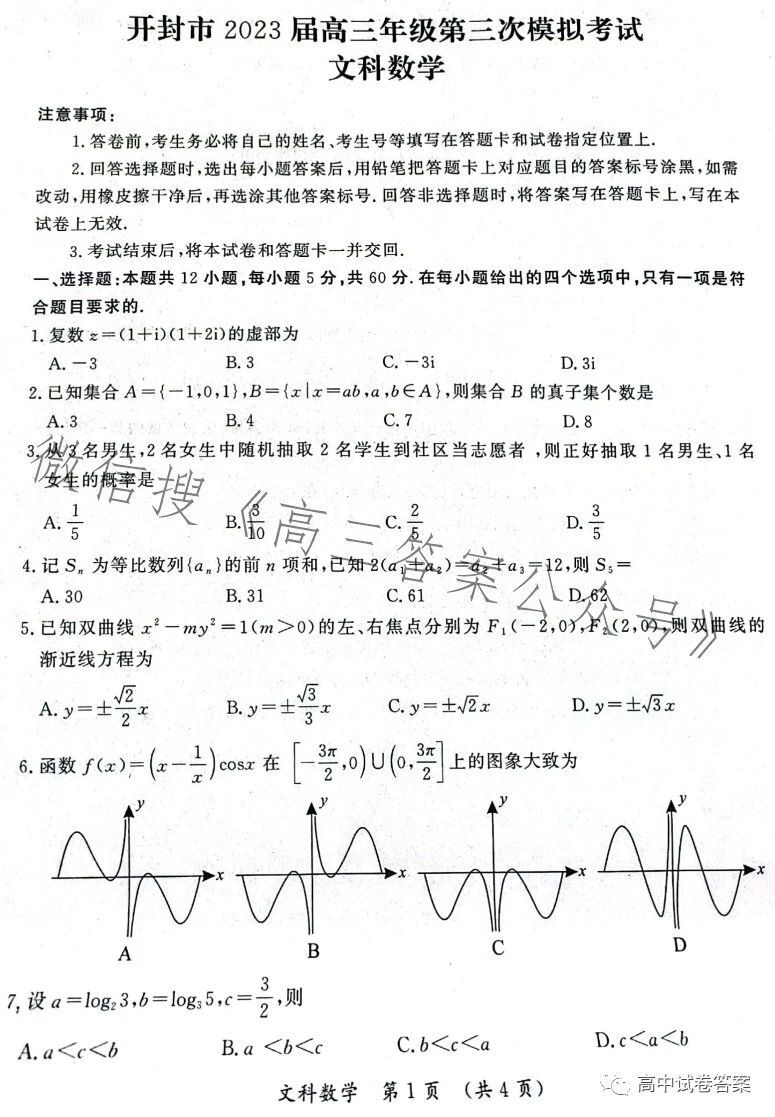 开封市 2023 届高三年级第三次模拟考试
文科数学
注意事项:
1. 答卷前,考生务必将自己的姓名、考生号等填写在答题卡和试卷指定位置上.
2. 回答选择题时,选出每小题答案后,用铅笔把答题卡上对应题目的答案标号涂黑,如需
改动,用橡皮擦干净后,再选涂其他答案标号. 回答非选择题时,将答案写在答题卡上,写在本
试卷上无效.
3. 考试结束后,将本试卷和答题卡一并交回.
一、选择题:本题共 12 小题,每小题 5 分,共 60 分. 在每小题给出的四个选项中,只有一项是符
合题目要求的.
1. 复数 z=(1+i)(1+2i)的虚部为
A. −3 B. 3 C. −3i D. 3i
2. 已知集合 A={−1,0,1},B={x|x=ab,a,b∈A},则集合 B 的真子集个数是
A. 3 B. 4 C. 7 D. 8
3. 从 3 名男生,2 名女生中随机抽取 2 名学生到社区当志愿者 ,则正好抽取 1 名男生、1 名
女生的概率是
A. 1/5 B. 3/10 C. 2/5 D. 3/5
4. 记 Sₙ 为等比数列{aₙ}的前 n 项和,已知 2(a₁+a₂)=a₂+a₃=12,则 S₅=
A. 30 B. 31 C. 61 D. 62
5. 已知双曲线 x²−my²=1(m>0)的左、右焦点分别为 F₁(−2,0),F₂(2,0),则双曲线的
渐近线方程为
A. y=±√2/2 x B. y=±√3/3 x C. y=±√2 x D. y=±√3 x
6. 函数 f(x)=(x−1/x)cosx 在 [−3π/2,0)∪(0,3π/2]上的图象大致为
y y y y
x x x x
A B C D
7, 设 a=log₂3,b=log₃5,c=3/2,则
A. a<c<b B. a<b<c C. b<c<a D. c<a<b
文科数学 第 1 页 (共 4 页)
微信搜《高三答案公众号》
高中试卷答案